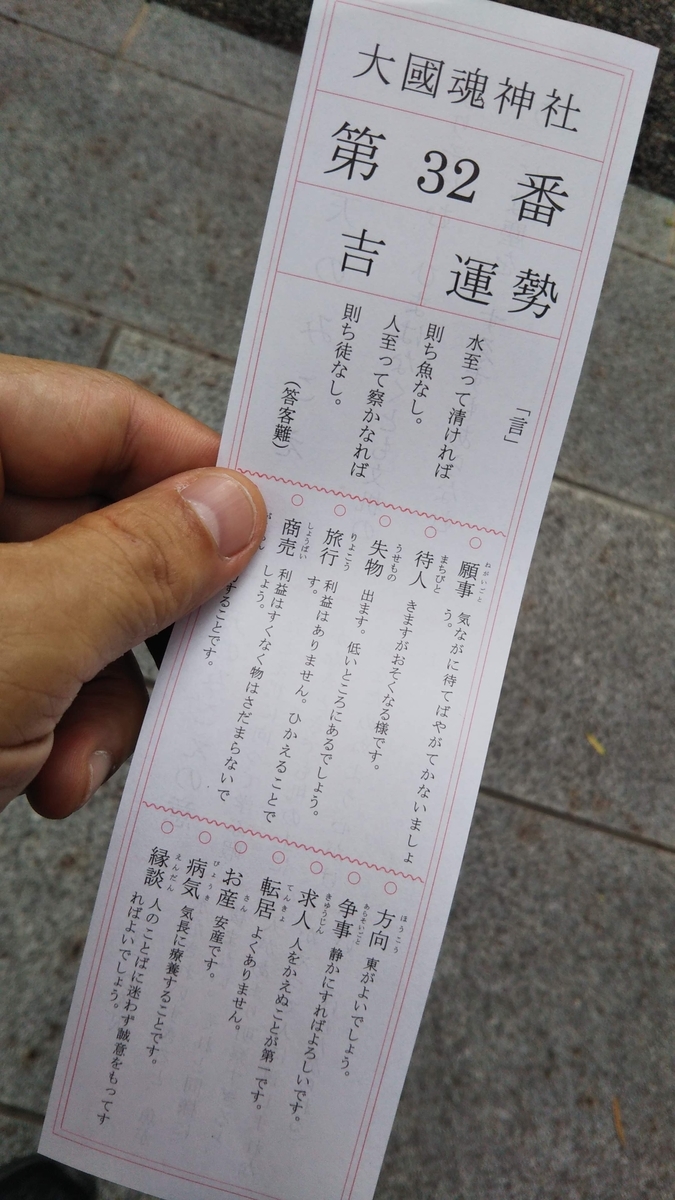 大國魂神社
第 32 番
運勢
吉
「言」
水至って清ければ
則ち魚なし。
人至って察かなれば
則ち徒なし。
（答客難）
ねがいごと
○ 願事 気ながに待てばやがてかないましょ
う。
まちびと
○ 待人 きますがおそくなる様です。
うせもの
○ 失物 出ます。低いところにあるでしょう。
りょこう
○ 旅行 利益はありません。ひかえることで
す。
しょうばい
○ 商売 利益はすくなく物はさだまらないで
しょう。
することです。
ほうこう
○ 方向 東がよいでしょう。
あらそいごと
○ 争事 静かにすればよろしいです。
きゅうじん
○ 求人 人をかえぬことが第一です。
てんきょ
○ 転居 よくありません。
さん
○ お産 安産です。
びょうき
○ 病気 気長に療養することです。
えんだん
○ 縁談 人のことばに迷わず誠意をもってす
ればよいでしょう。